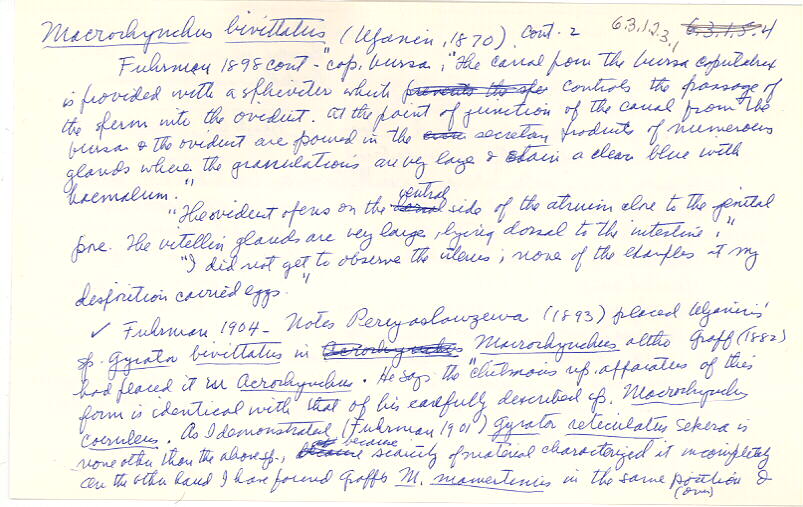 Macrorhynchus bivittatus (Uljanin, 1870) Cont. 2 6.3.1.2.3.1 6.3.1.5.4
Fuhrman 1898 cont - "cop. bursa; "The canal from the bursa copulatrix
is provided with a sphincter which prevents the spe controls the passage of
the sperm into the oviduct. At the point of junction of the canal from the
bursa & the oviduct are poured in the secretory products of numerous
glands where the granulations are very large & stain a clear blue with
haemalum."
"The oviduct opens on the ventral side of the atrium close to the genital
pore. The vitellin glands are very large, lying dorsal to the intestine;"
"I did not get to observe the uterus; none of the examples at my
desposition carried eggs."
✓ Fuhrman 1904 - Notes Pereyaslawzewa (1893) placed Uljanin's
sp. Gyrator bivittatus in Acrorhynchus Macrorhynchus altho Graff (1882)
had placed it in Acrorhynchus. He says the "chitinous rep. apparatus of this
form is identical with that of his carefully described sp. Macrorhynchus
coeruleus. As I demonstrated (Fuhrman 1901) Gyrator reticulatus Sekera is
none other than the above sp., because scarcity of material characterized it incompletely
On the other hand I have found Graff's M. mamertinus in the same position &
(over)